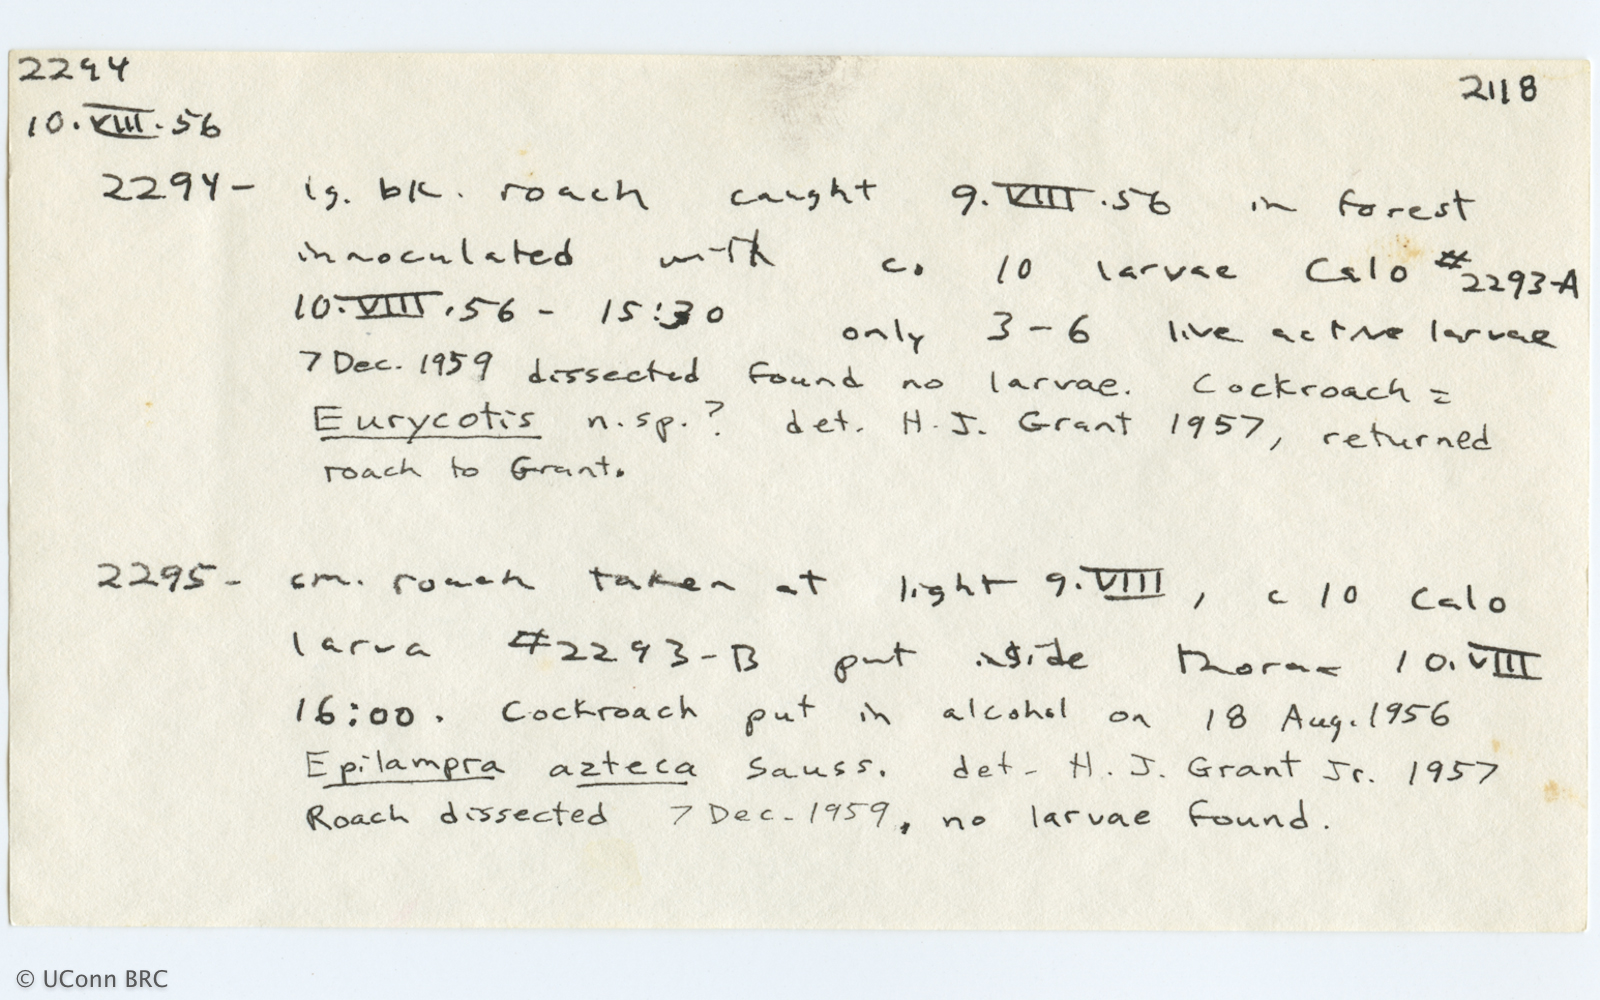 2294
2118
10.VIII.56
2294- lg. bk. roach caught 9.VIII.56 in forest
innoculated with c. 10 larvae Calo #2293-A
10.VIII.56 - 15:30 only 3-6 live active larvae
7 Dec. 1959 dissected found no larvae. Cockroach =
Eurycotis n.sp.? det. H.J. Grant 1957, returned
roach to Grant.
2295- sm. roach taken at light 9.VIII, c 10 Calo
larva #2293-B put inside thorax 10.VIII
16:00. Cockroach put in alcohol on 18 Aug. 1956
Epilampra azteca Sauss. det- H.J. Grant Jr. 1957
Roach dissected 7 Dec. 1959, no larvae found.
© UConn BRC